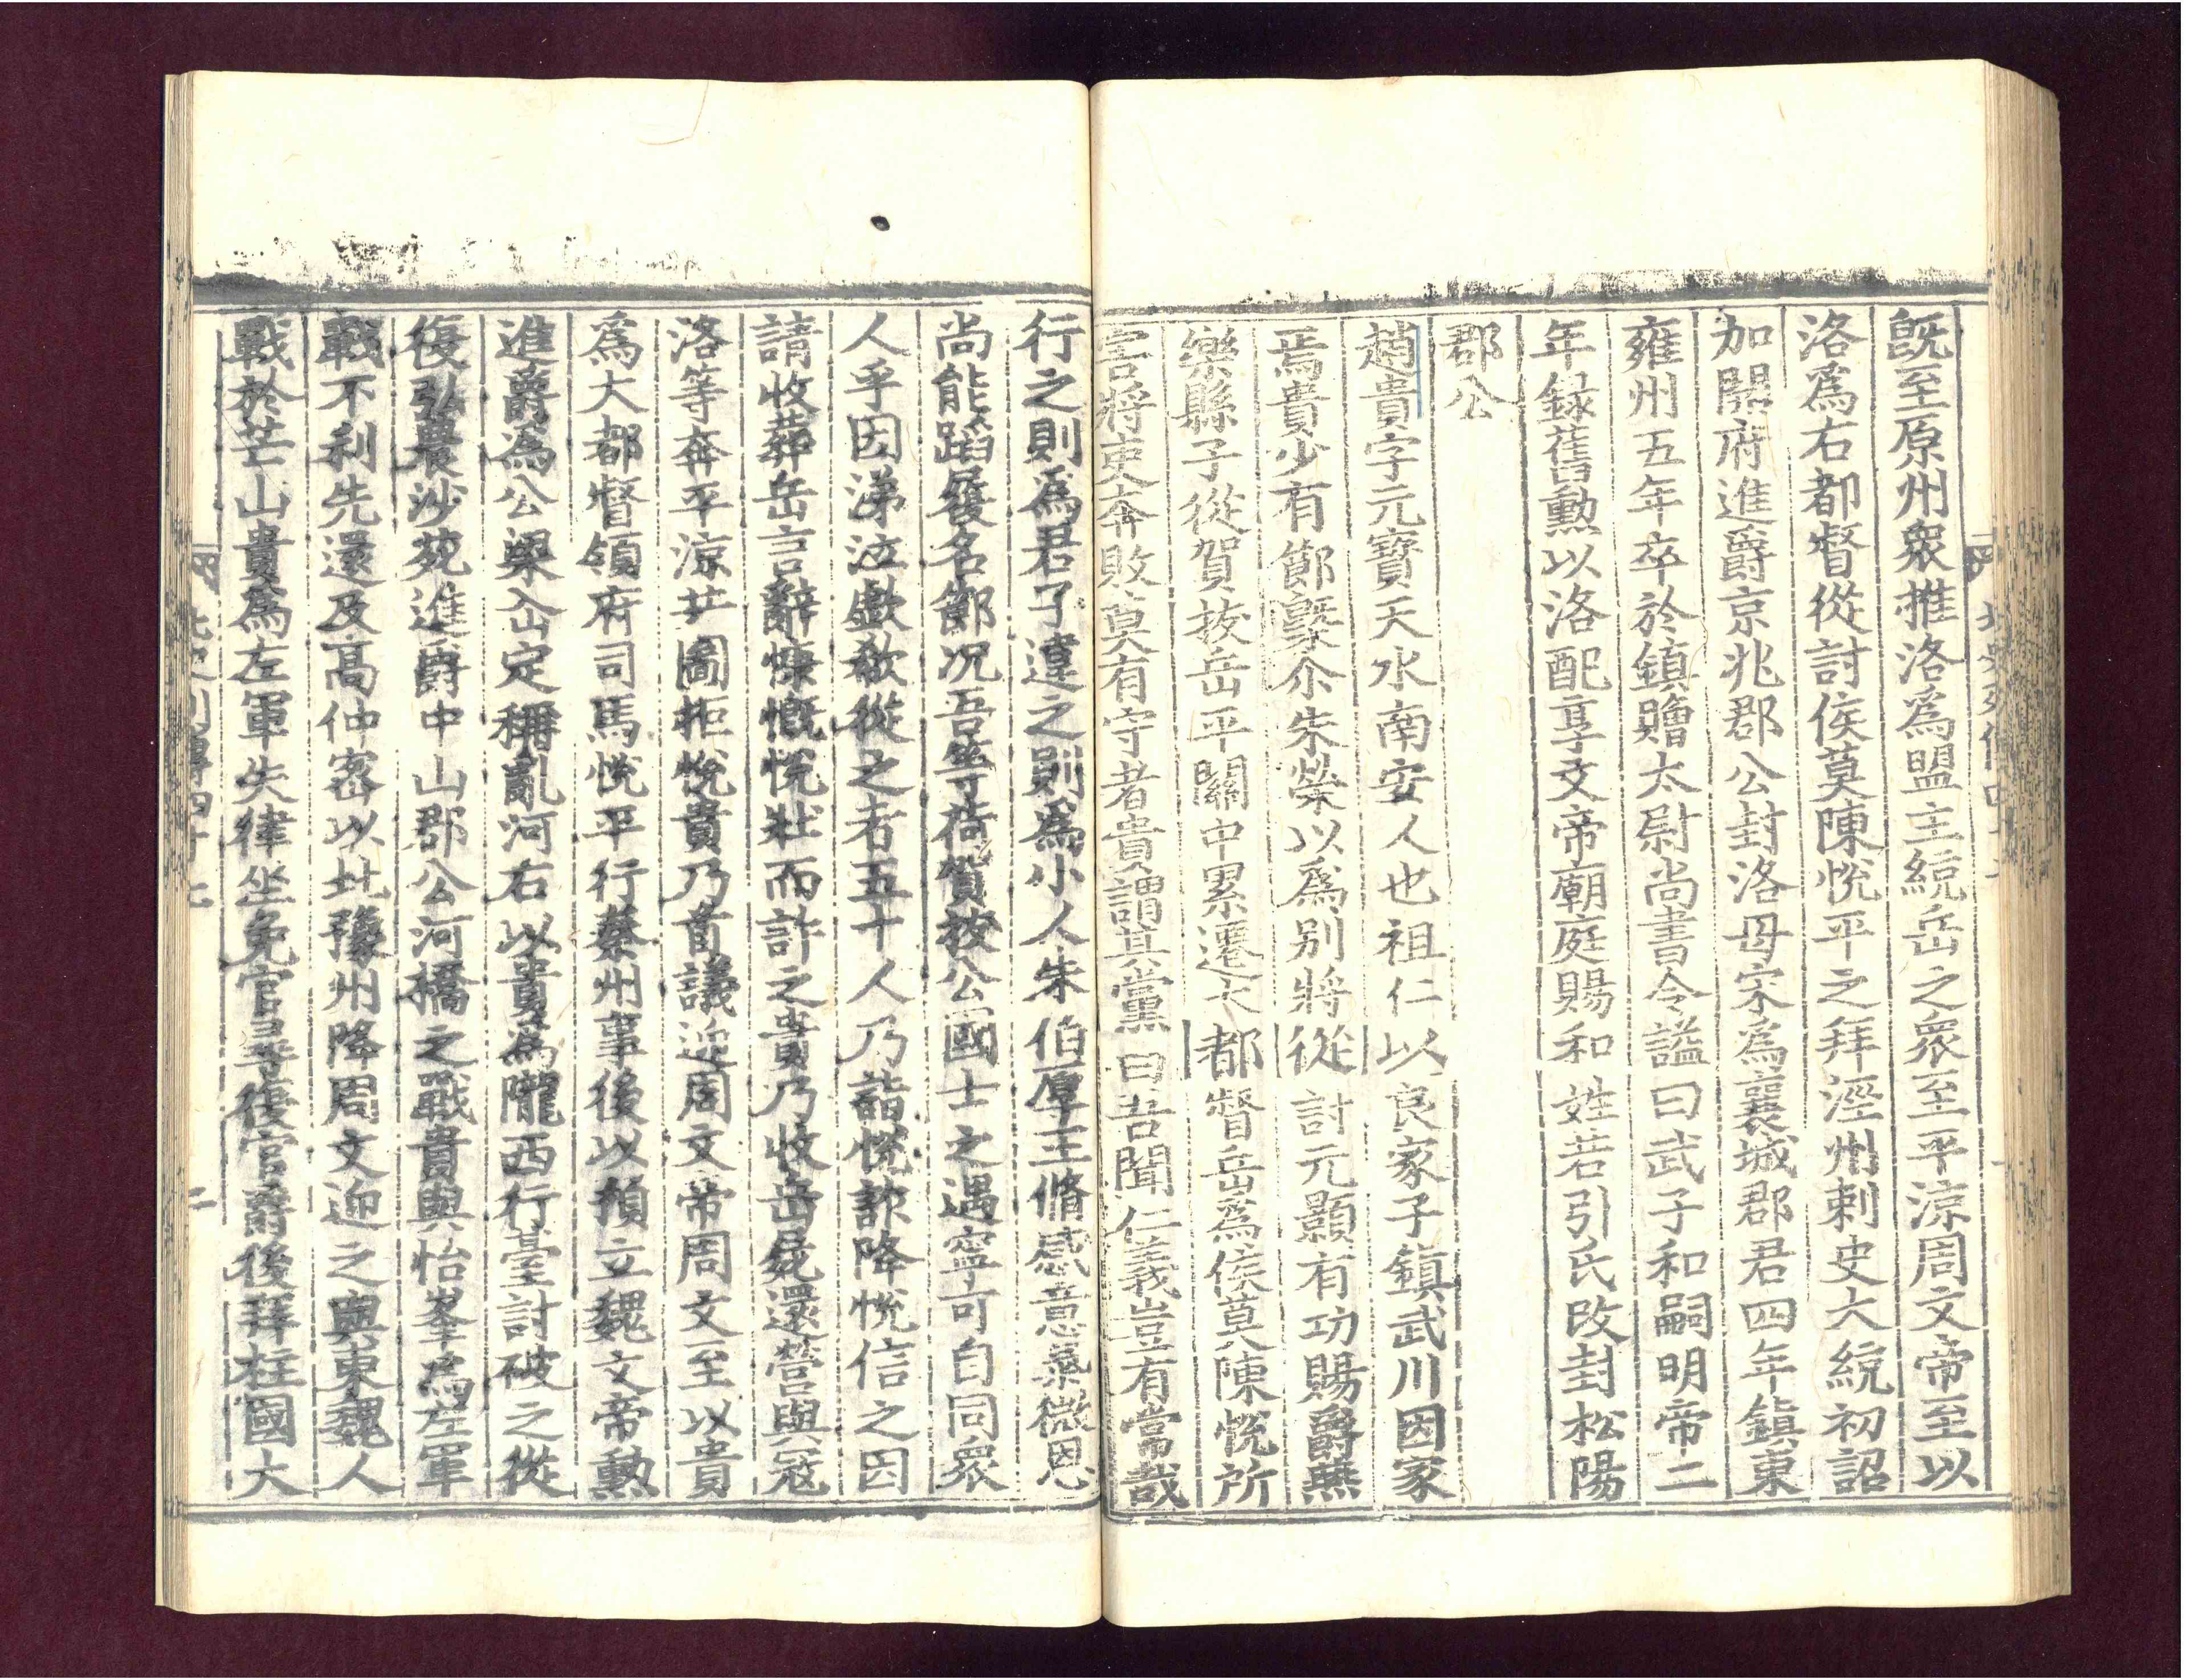 既至原州衆推洛爲盟主統岳之衆至平涼周文帝至以
洛爲右都督從討侯莫陳悅平之拜涇州剌史大統初詔
加開府進爵京兆郡公封洛母宋爲襄城郡君四年鎮東
雍州五年卒於鎮贈太尉尚書令謚曰武子和嗣明帝二
年録舊勳以洛配享文帝廟庭賜和姓若引氏改封松陽
郡公
趙貴字元寶天水南安人也祖仁以良家子鎮武川因家
焉貴少有節槩尒朱榮以爲别將從討元顥有功賜爵燕
樂縣子從賀拔岳平關中累遷大都督岳爲侯莫陳悅所
害將吏奔敗莫有守者貴謂其黨曰吾聞仁義豈有常哉
行之則爲君子違之則爲小人朱伯厚王脩感意氣微恩
尚能蹈履名節况吾等荷賀拔公國士之遇寧可自同衆
人乎因涕泣歔欷從之者五十人乃詣悅詐降悅信之因
請收葬岳言辭慷慨悅壯而許之貴乃收岳屍還營與寇
洛等奔平涼共圖拒悅貴乃首議迎周文帝周文至以貴
爲大都督領府司馬悅平行秦州事後以預立魏文帝勲
進爵爲公梁仚定稱亂河右以貴爲隴西行臺討破之從
復弘農沙苑進爵中山郡公河橋之戰貴與怡峯爲左軍
戰不利先還及高仲宻以北豫州降周文迎之與東魏人
戰於芒山貴爲左軍失律坐免官尋復官爵後拜柱國大
北史列傳四十七
二